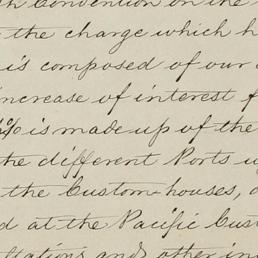 Convention on the
the charge which h
is composed of our
increase of interest f
% is made up of the
the different Ports u
the Custom-houses, a
d at the Pacific Cust
and other in